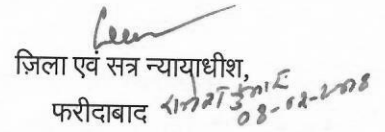 ज़िला एवं सत्र न्यायाधीश,
फरीदाबाद
08-02-2008